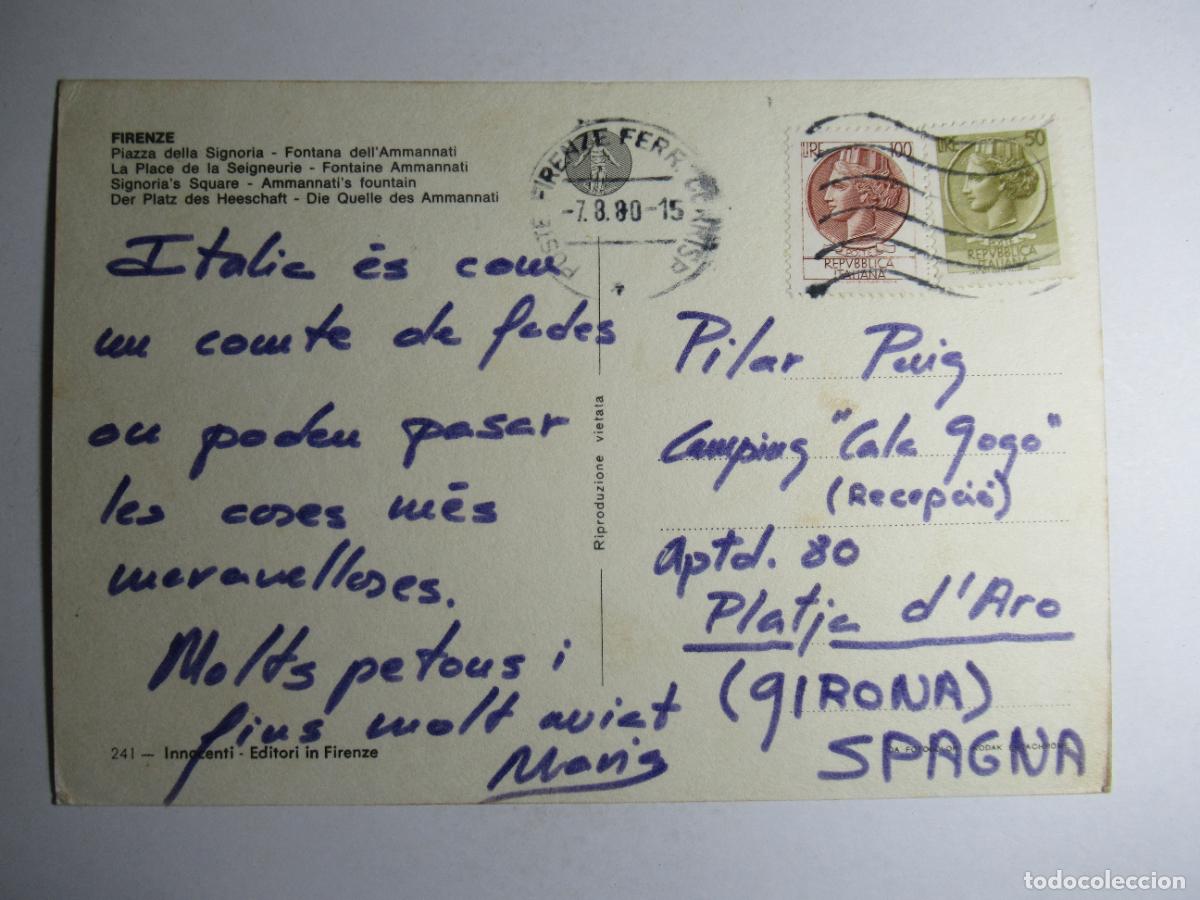 FIRENZE
Piazza della Signoria - Fontana dell'Ammannati
La Place de la Seigneurie - Fontaine Ammannati
Signoria's Square - Ammannati's fountain
Der Platz des Heeschaft - Die Quelle des Ammannati
Italia és com
un comte de fades
on poden pasar
les coses més
meravelloses.
Molts petons i
fins molt aviat
Maria
241 — Innocenti - Editori in Firenze
Riproduzione vietata
POSTE FIRENZE FERR.
-7.8.80-15
LIRE 100
REPVBBLICA
ITALIANA
LIRE 50
POSTE
REPVBBLICA
ITALIANA
Pilar Puig
Camping "Cala Gogo"
(Recepció)
Aptd. 80
Platja d'Aro
(GIRONA)
SPAGNA
DA FOTOCOLOR KODAK EKTACHROME
todocoleccion